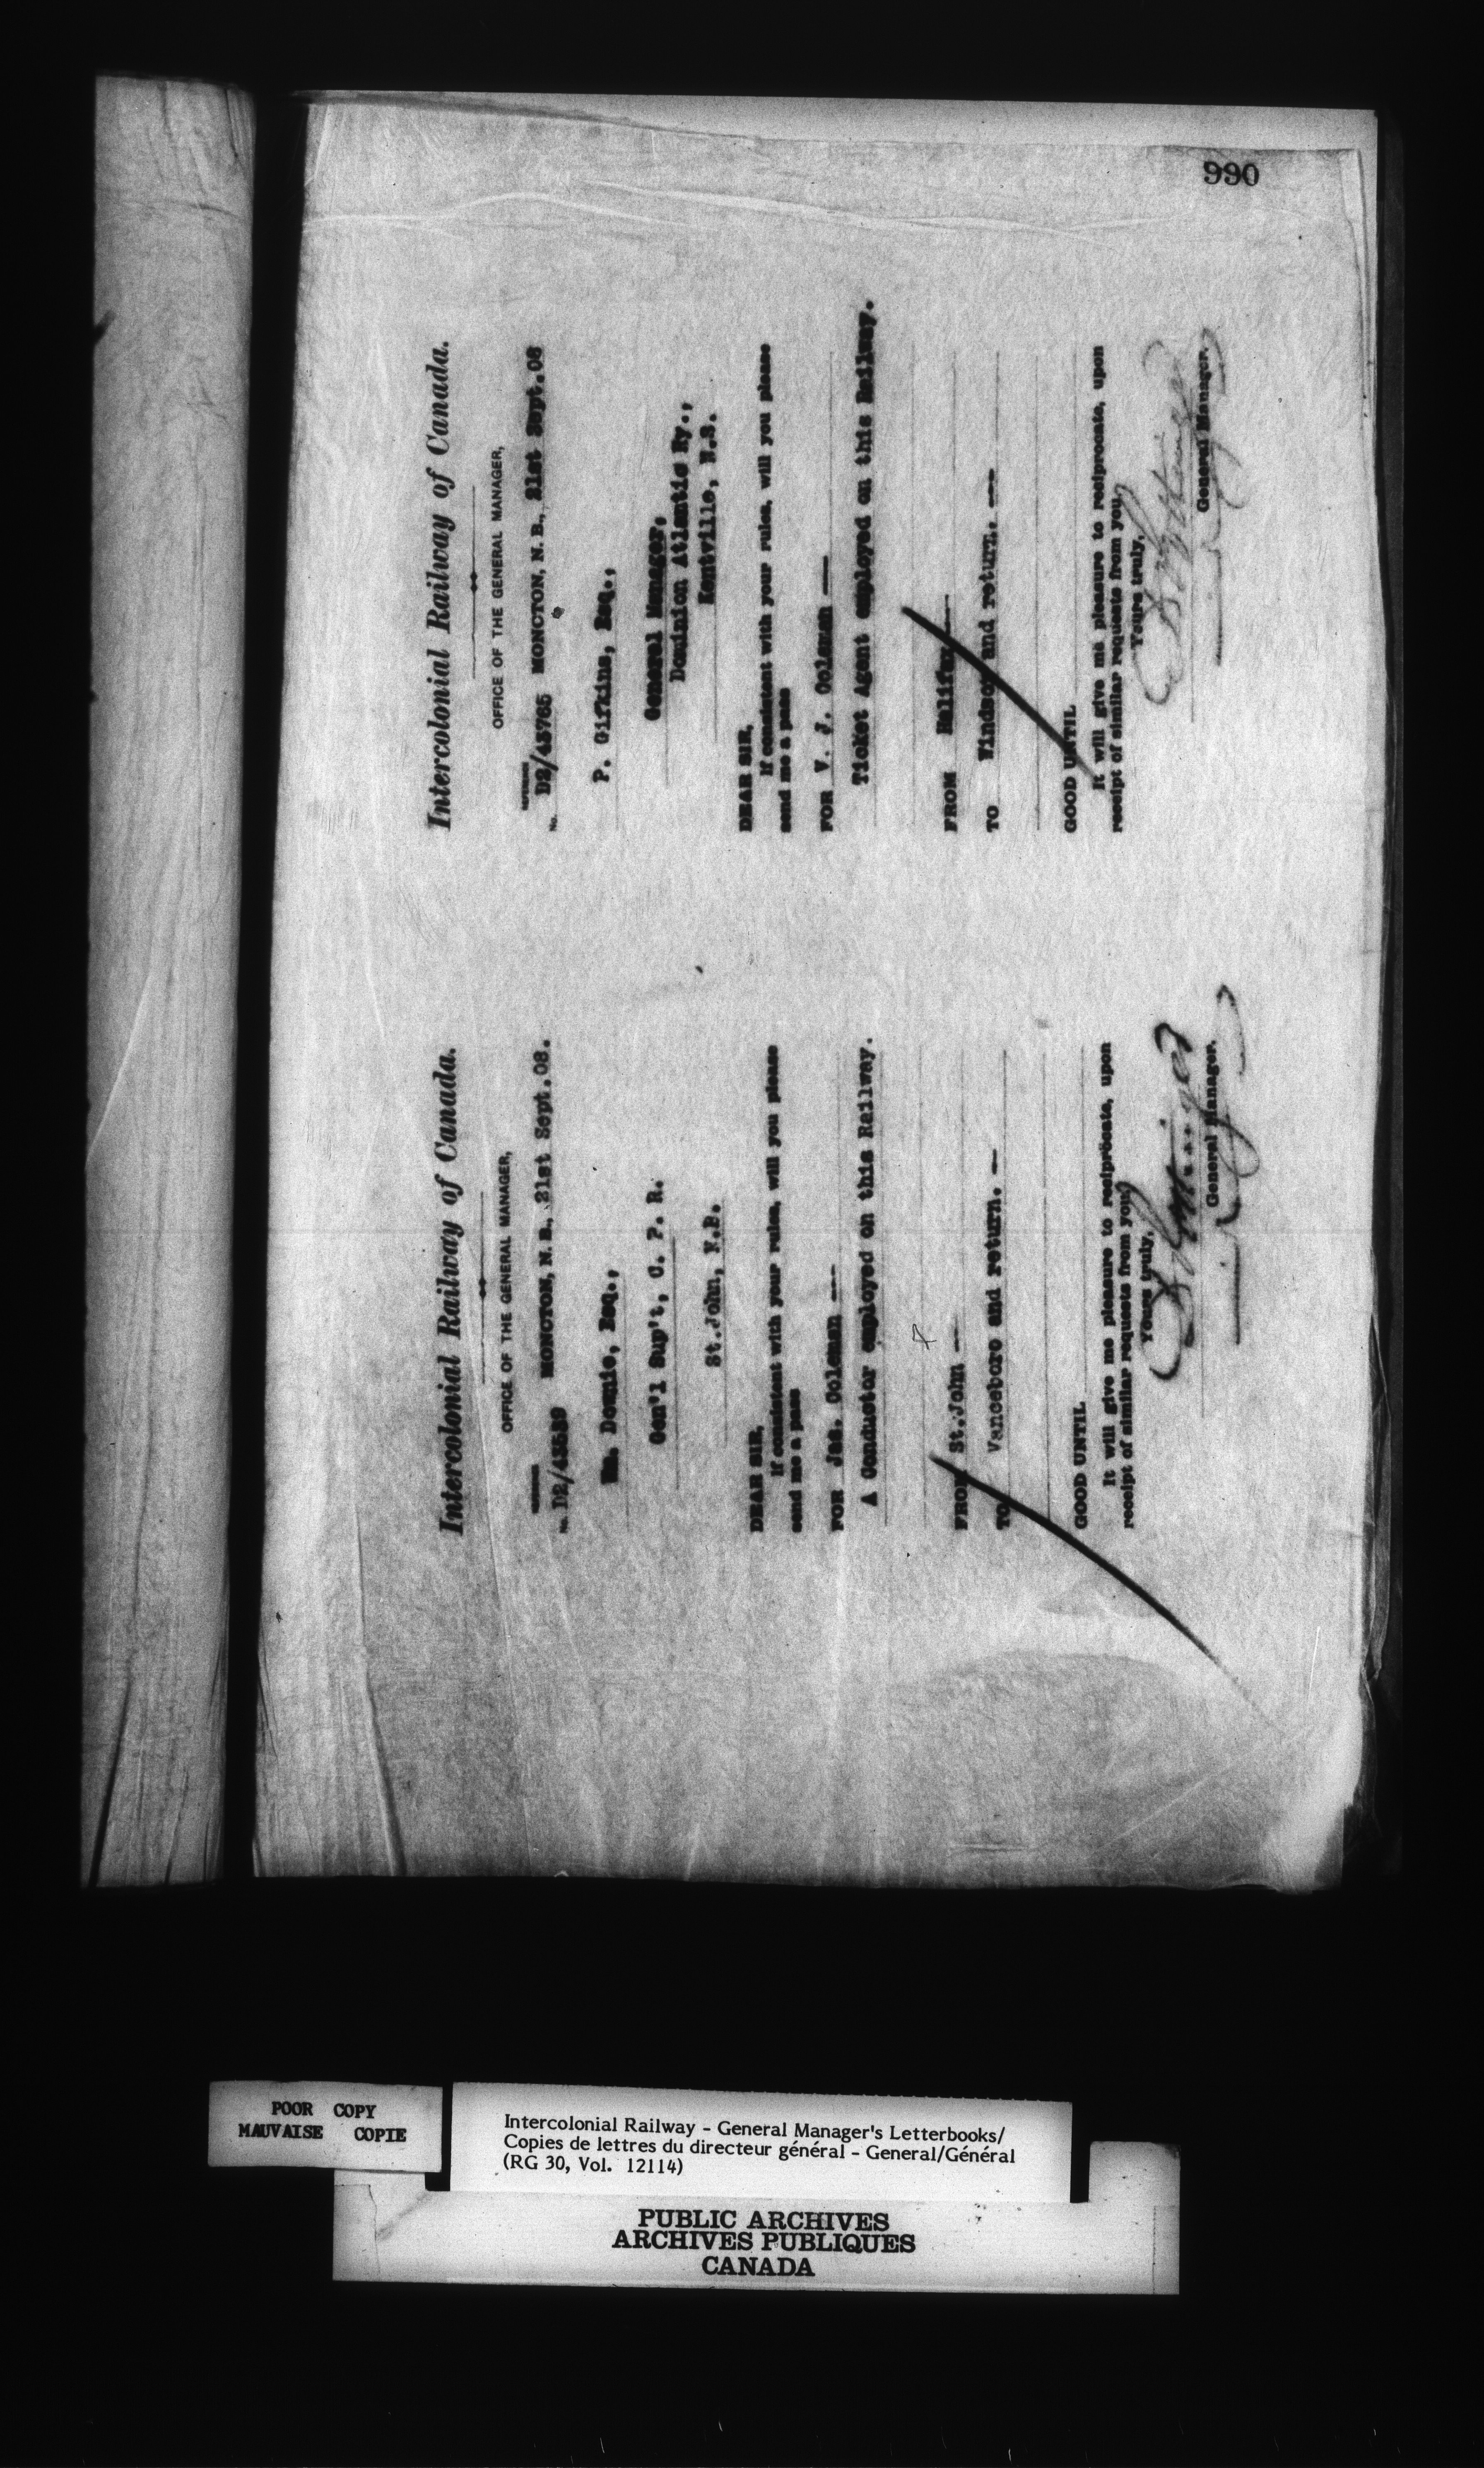 990
Intercolonial Railway of Canada.
OFFICE OF THE GENERAL MANAGER,
No. MONCTON, N. B., 21st Sept.08.
Wm. Downie, Esq.,
Gen'l Sup't, C. P. R.
St.John, N.B.
DEAR SIR,
If consistent with your rules, will you please
send me a pass
FOR Jas. Coleman —
A Conductor employed on this Railway.
FROM St.John —
TO Vanceboro and return. —
GOOD UNTIL
It will give me pleasure to reciprocate, upon
receipt of similar requests from you.
Yours truly,
General Manager.
Intercolonial Railway of Canada.
OFFICE OF THE GENERAL MANAGER,
No. D2/45765 MONCTON, N. B., 21st Sept.08
P. Gifkins, Esq.,
General Manager,
Dominion Atlantic Ry.,
Kentville, N.S.
DEAR SIR,
If consistent with your rules, will you please
send me a pass
FOR V. J. Coleman —
Ticket Agent employed on this Railway.
FROM Halifax —
TO Windsor and return. —
GOOD UNTIL
It will give me pleasure to reciprocate, upon
receipt of similar requests from you.
Yours truly,
General Manager.
POOR COPY
MAUVAISE COPIE
Intercolonial Railway - General Manager's Letterbooks/
Copies de lettres du directeur général - General/Général
(RG 30, Vol. 12114)
PUBLIC ARCHIVES
ARCHIVES PUBLIQUES
CANADA